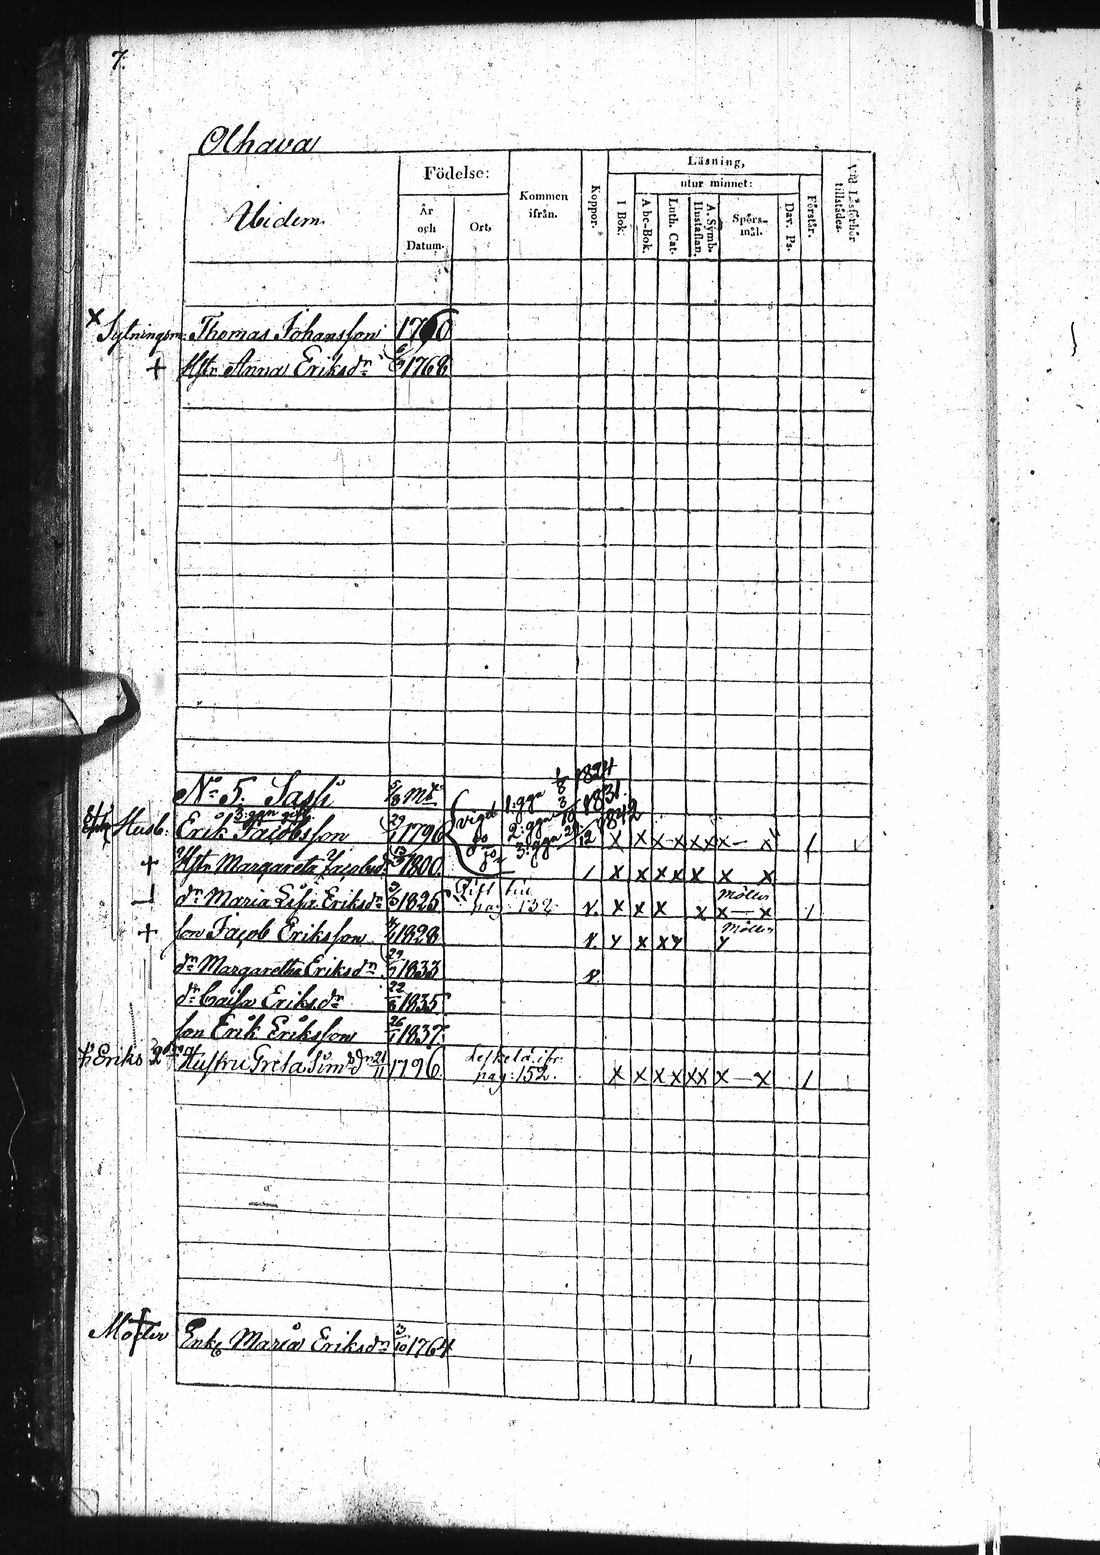 7.
Olhava
Ibidem.
Födelse:
År
och
Datum.
Ort.
Kommen
ifrån.
Koppor.
Läsning,
utur minnet:
I Bok.
Abc-Bok.
Luth. Cat.
A. Symb.
Hustaflan.
Spörs-
mål.
Dav. Ps.
Förstår.
Vid Läsförhör
tillstädes.
x Sytningsm. Thomas Johansson 1760
+ Hstr Anna Eriksdr 1768
No 5. Sassi 5/8 mtl
3:ggn gift
Husb. Erik Jacobsson 29/1 1796
viget 1:ggn 1/8 1824
do 2:ggn 3/10 1831.
do 3:ggn 20/12 1842
x x x x x x x — x 1
+ Hstr Margareta Jacobsd 1800. 1 x x x x x x x
dr Maria Lisa Eriksdr 1825 Gift hu pag: 152. v. x x x x x — x 1
möller
+ son Jacob Eriksson 1828 v. y x x y y
möller
dr Margaretha Eriksdr 29 1833 v.
dr Caisa Eriksdr 22 1835
son Erik Eriksson 26/1 1837
Eriks Hustru Greta Sim:sdr 21/11 1796 pag: 152. x x x x x x — x 1
Moder + Enk. Maria Eriksdr 3/10 1764